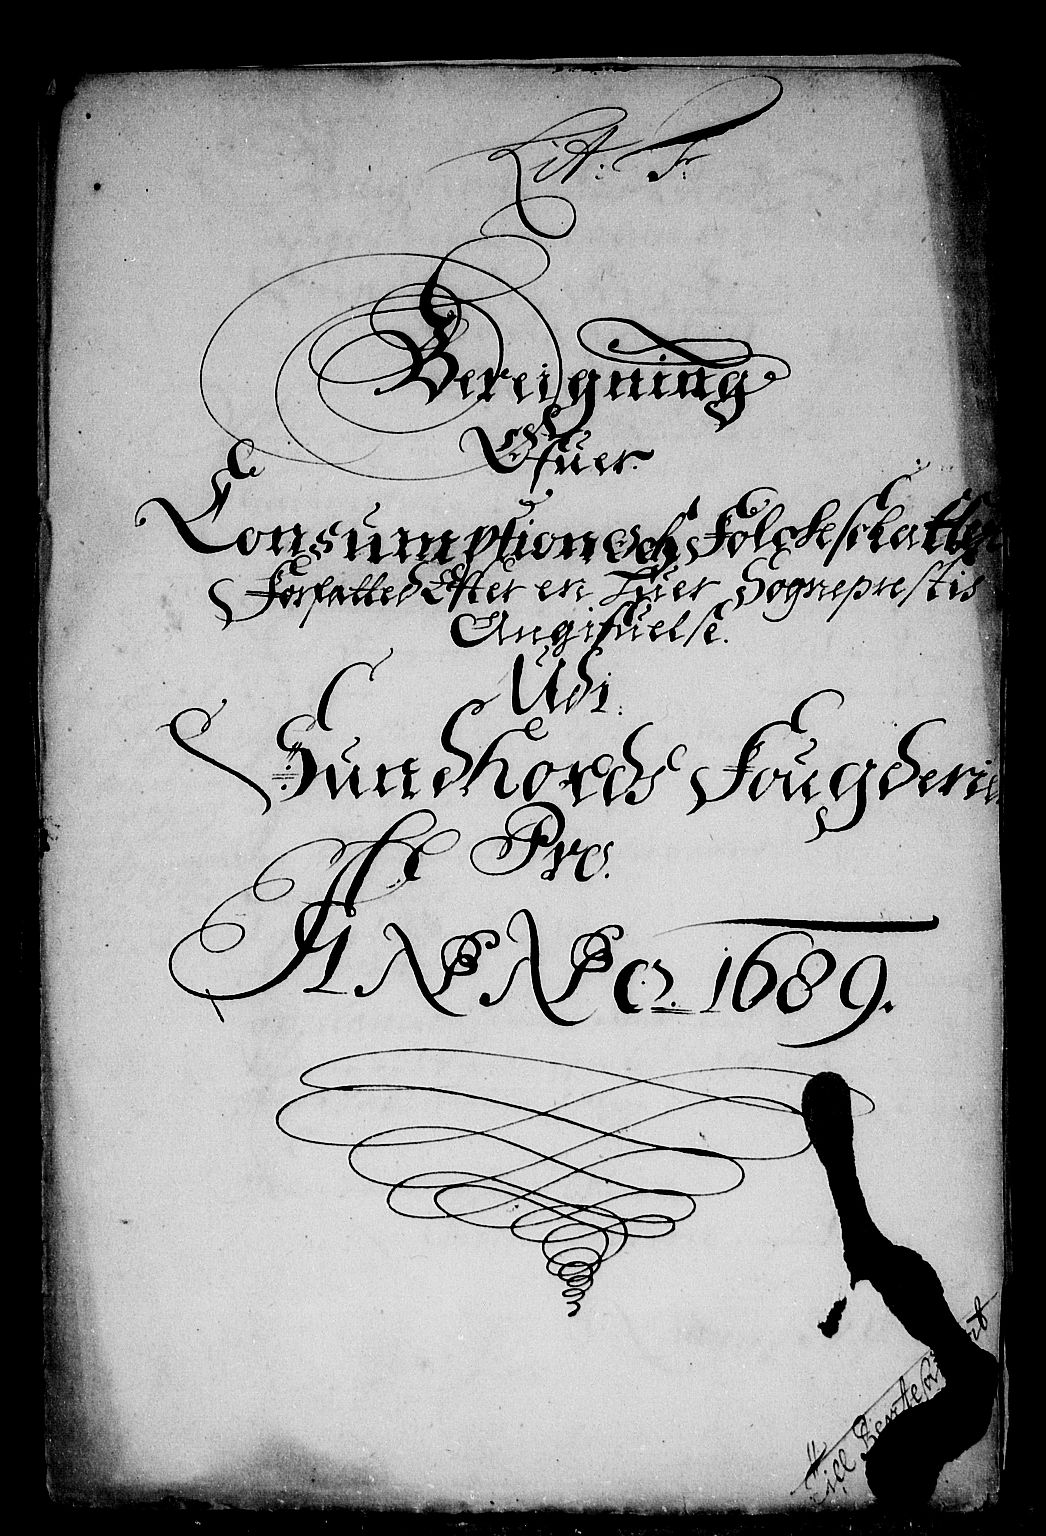 Lit: F:
Bereigning
Ofuer
Consumption och Folckeskatten
Forfatted Efter en huer Sogneprestis
Angifuelse.
Udi
Sundhords Fougderie
Pro
ANNO 1689.
Till